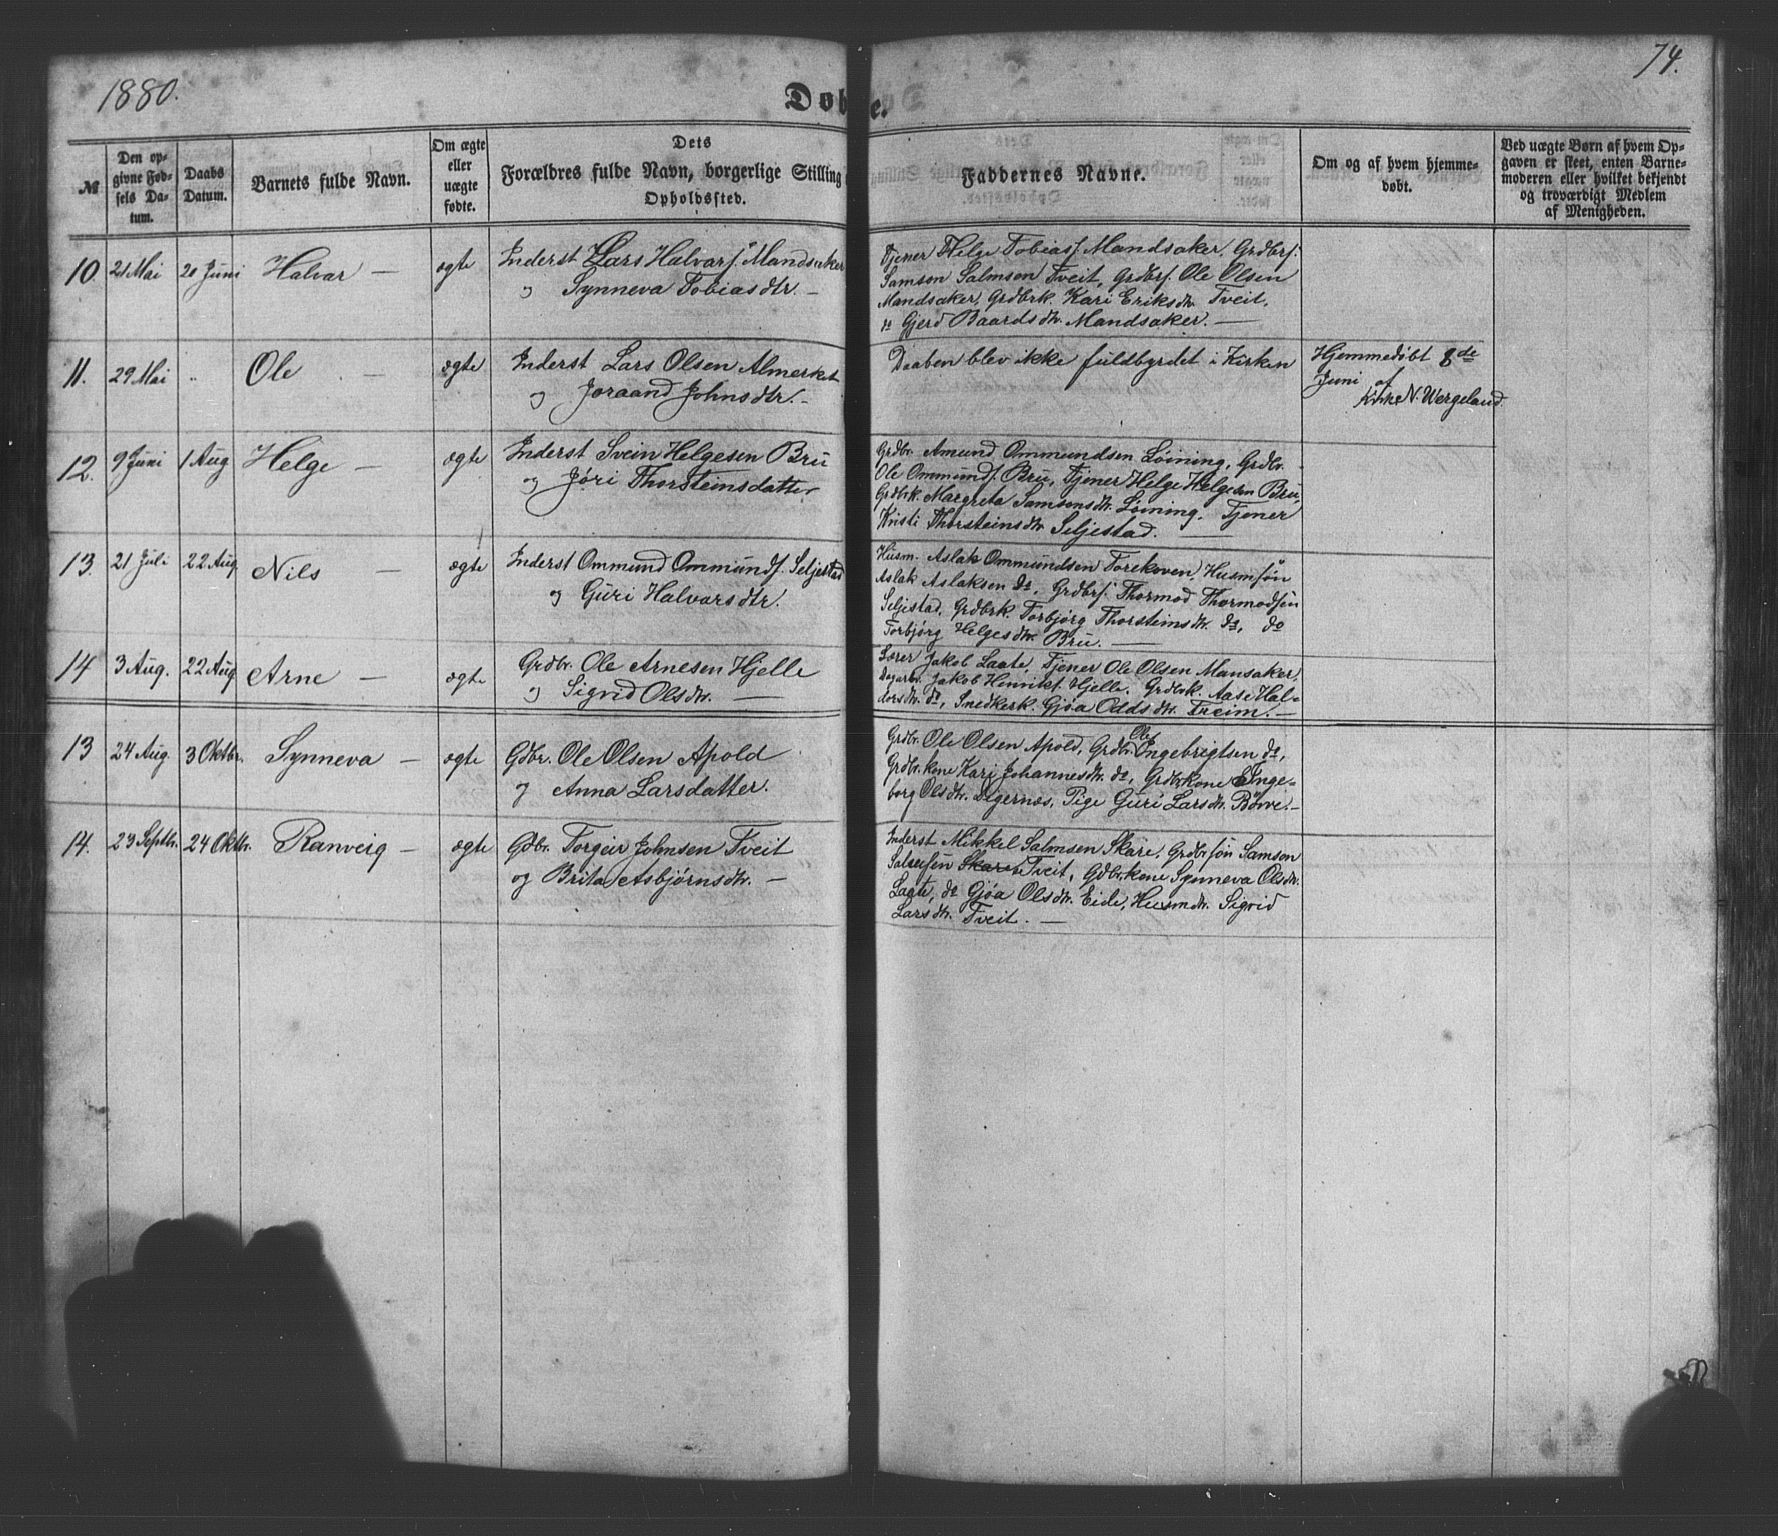 1880.
Døbte.
74.
№
Den op-
givne Fød-
sels Da-
tum.
Daabs
Datum.
Barnets fulde Navn.
Om ægte
eller
uægte
fødte.
Dets
Forældres fulde Navn, borgerlige Stilling
Opholdssted.
Faddernes Navne.
Om og af hvem hjemme-
døbt.
Ved uægte Børn af hvem Op-
gaven er skeet, enten Barne-
moderen eller hvilket bekjendt
og troværdigt Medlem
af Menigheden.
10. 21 Mai 20 Juni Halvar — ægte
Inderst Lars Halvarsʃ. Mandsaker
og Synneva Tobiasdtr. —
Tjener Helge Tobiasʃ. Mandsaker, Grdbrʃ.
Samson Salmson Tveit, Grdbrʃ. Ole Olsen
Mandsaker, Grdbrk. Kari Eriksdtr. Tveit,
do Gjerd Baardsdtr. Mandsaker. —
11. 29 Mai „ Ole — ægte
Inderst Lars Olsen Almerket
og Joraand Johnsdtr. —
Daaben blev ikke fuldbyrdet i Kirken
Hjemmedøbt 8de
Juni af
Kirkes. N. Wergeland.
12. 9 Juni 1 Aug Helge — ægte
Inderst Svein Helgesen Bru
og Jøri Thorsteinsdatter
Grdbr. Amund Ommundsen Løining, Grdbr.
Ole Ommundʃ. Bru, Tjener Helge Helgesen Bru,
Grdbrk. Margreta Samsonsdtr. Løining. Tjener
Kristi Thorsteinsdtr. Seljestad. —
13. 21 Juli 22 Aug Nils — ægte
Inderst Ommund Ommundʃ. Seljestad
og Guri Halvorsdtr.
Husm. Aslak Ommundsen Torekoven, Husmsøn
Aslak Aslaksen do, Grdbrʃ. Thormod Thormodsen
Seljestad, Grdbrk Torbjørg Thorsteinsdtr. do, do
Torbjørg Helgesdtr. Bru. —
14 3 Aug. 22 Aug Arne — ægte
Grdbr. Ole Arnesen Hjelle
og Sigrid Olsdtr. —
Lærer Jakob Laate, Tjener Ole Olsen Mansaker,
Dagarb. Jakob Henrikʃ. Hjelle. Grdbrk. Aase Hal-
dorsdtr. do, Snedkerk. Gjøa Oddsdtr. Freim. —
13 24 Aug. 3 Oktbr. Synneva — ægte
Gdbr. Ole Olsen Apold
og Anna Larsdatter.
Grdbr. Ole Olsen Apold, Grdbr. Ole Ingebrigtsen do,
Grdbr.kone Kari Johannesdtr. do, Grdbrkone Inge-
borg Olsdtr. Degernæs, Pige Guri Larsdtr. Børve. —
14. 23 Septbr. 24 Oktbr. Ranveig — ægte
Gdbr. Torgeir Johnsen Tveit
og Brita Asbjørnsdtr. —
Inderst Mikkel Salmsen Skare, Grdbr.søn Samson
Tveit, Gdbrkone Synneva Olsdtr.
Laate, do Gjøa Olsdtr. Eide, Husmdtr. Sigrid
Larsdtr. Tveit. —